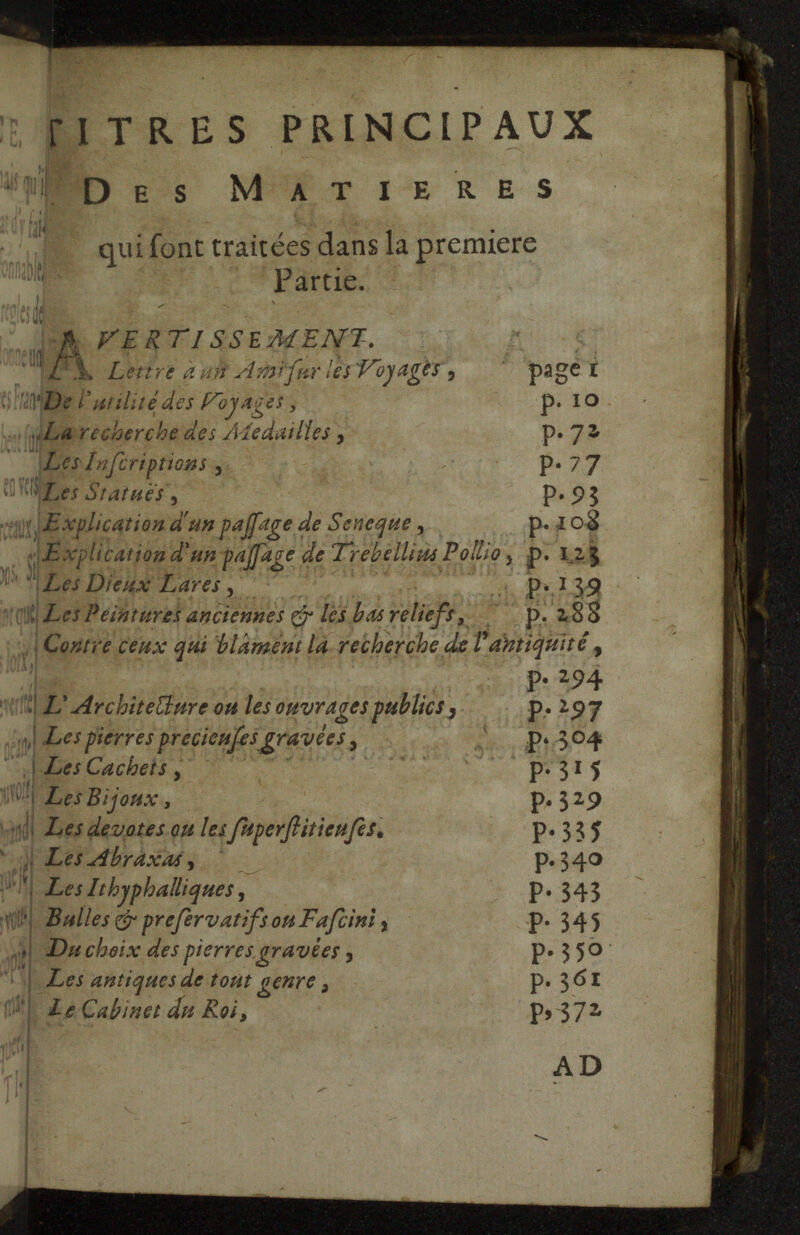 TITRES PRINCIPAUX
DES MATIERES
qui ſont traitées dans la premiere
Partie.
AVERTISSEMENT.
Lettre à un Ami ſur les Voyages, page 1
De l'utilité des Voyages, p. 10
La recherche des Medailles, p. 72
Les Inſcriptions, p. 77
Les Statuës, p. 93
Explication d'un paſſage de Seneque, p. 108
Explication d'un paſſage de Trebellius Pollio, p. 123
Les Dieux Lares, p. 139
Les Peintures anciennes & les bas reliefs, p. 288
Contre ceux qui blâment la recherche de l'antiquité,
p. 294
L'Architecture ou les ouvrages publics, p. 297
Les pierres precieuſes gravées, p. 304
Les Cachets, p. 315
Les Bijoux, p. 329
Les devotes ou les ſuperſtitieuſes. p. 335
Les Abraxas, p. 340
Les Ithyphalliques, p. 343
Bulles & preſervatifs ou Faſcini, p. 345
Du choix des pierres gravées, p. 350
Les antiques de tout genre, p. 361
Le Cabinet du Roi, p. 372
AD